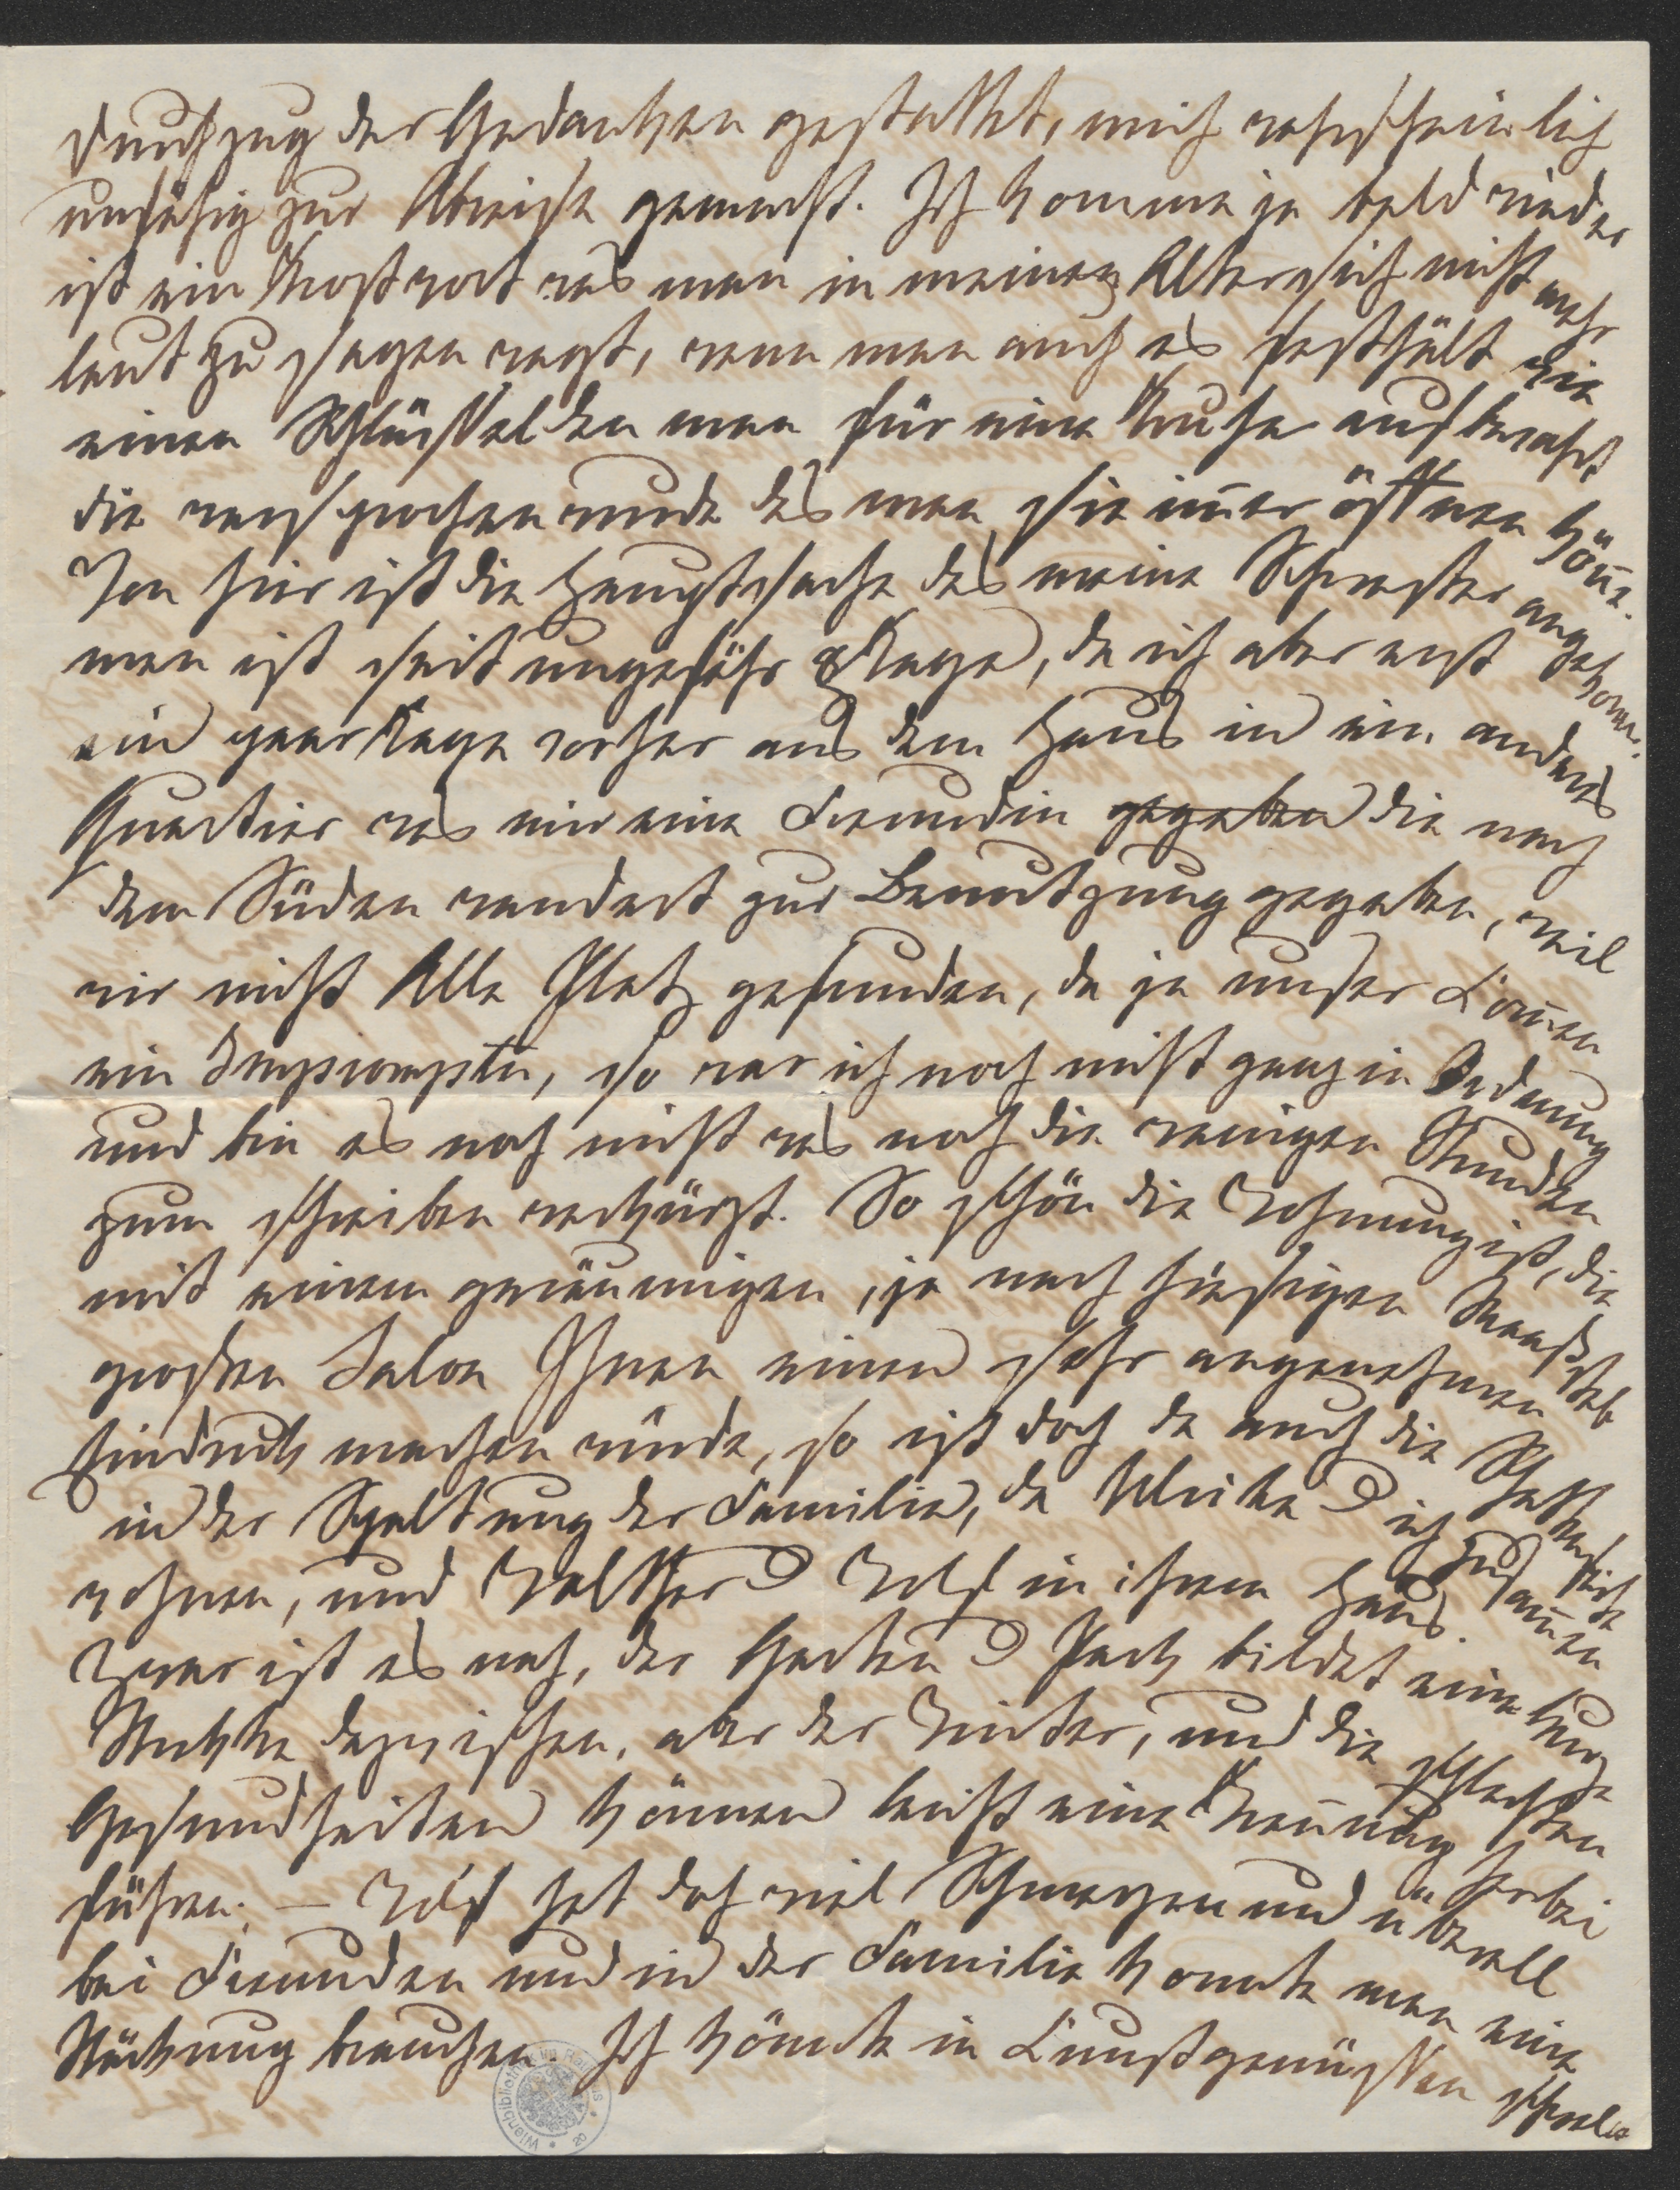 Durchzug der Gedanken gestattet, mich wahrscheinlich
unfähig zur Abreise gemacht. Ich komme ja bald wieder
ist ein Trostwort was man in meinem Alter sich nicht mehr
laut zu sagen wagt, wenn man auch es festhält wie
einen Schlüssel den man für eine Truhe aufbewahrt
die versprochen wurde das man sie im̅er öffnen kön̅e.
Von hier ist die Hauptsache das meine Schwester angekom̅en
man ist seit ungefähr 8 Tage, da ich aber erst
ein paar Tage vorher aus dem Haus in ein anderes
Quartier was mir eine Freundin gegeben die nach
dem Süden wandert zur Benutzung gegeben, weil
wir nicht Alle Platz gefunden, da ja unser Kom̅en
ein Impromptu, so war ich noch nicht ganz in Ordnung
und bin es noch nicht was noch die wenigen Stunden
zum schreiben verkürzt. So schön die Wohnung ist, die
mit einem geräumigen, ja nach hiesigen Maaßstab
großen Salon Ihnen einen sehr angenehmen
Eindruck machen würde, so ist doch da auch die Schattenseite
in der Spaltung der Familie, da Ulrike & ich zusam̅en
wohnen, und Walther & Wolf in ihrem Haus.
Zwar ist es nah, der Garten & Park bildet eine kurze
Strecke dazwischen, aber der Winter, und die schlechten
Gesundheiten können leicht eine Tren̅ung herbei
führen; – Wolf hat doch viel Schmerzen und überall
bei Freunden und in der Familie konnte man eine
Stärkung brauchen. Ich könnte in Kunstgenüssen schwel
Wienbibliothek im Rathaus